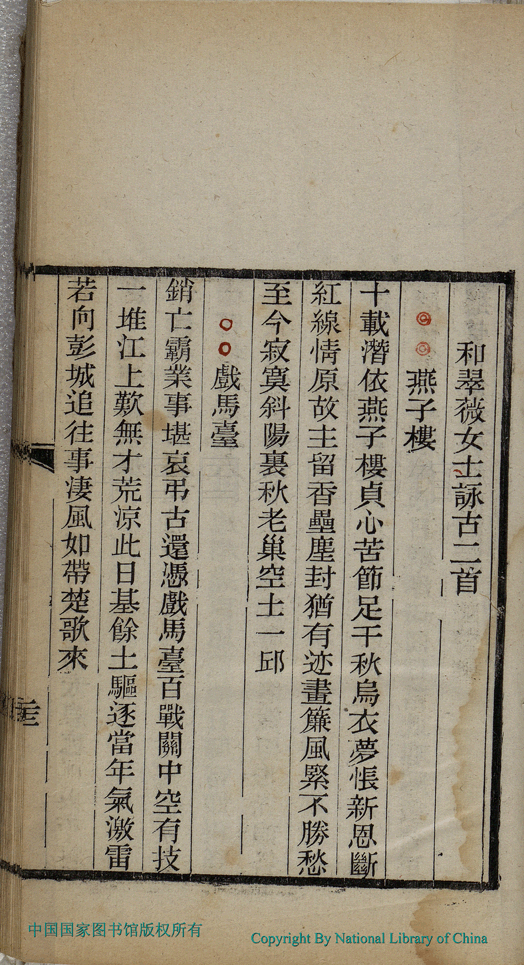 和翠薇女士詠古二首
燕子樓
十載潛依燕子樓貞心苦節足千秋烏衣夢悵新恩斷
紅線情原故主留香壘塵封猶有迹畫簾風緊不勝愁
至今寂寞斜陽裏秋老巢空土一邱
戲馬臺
銷亡霸業事堪哀弔古還憑戲馬臺百戰關中空有技
一堆江上歎無才荒涼此日基餘土驅逐當年氣激雷
若向彭城追往事凄風如帶楚歌來
中国国家图书馆版权所有
Copyright By National Library of China